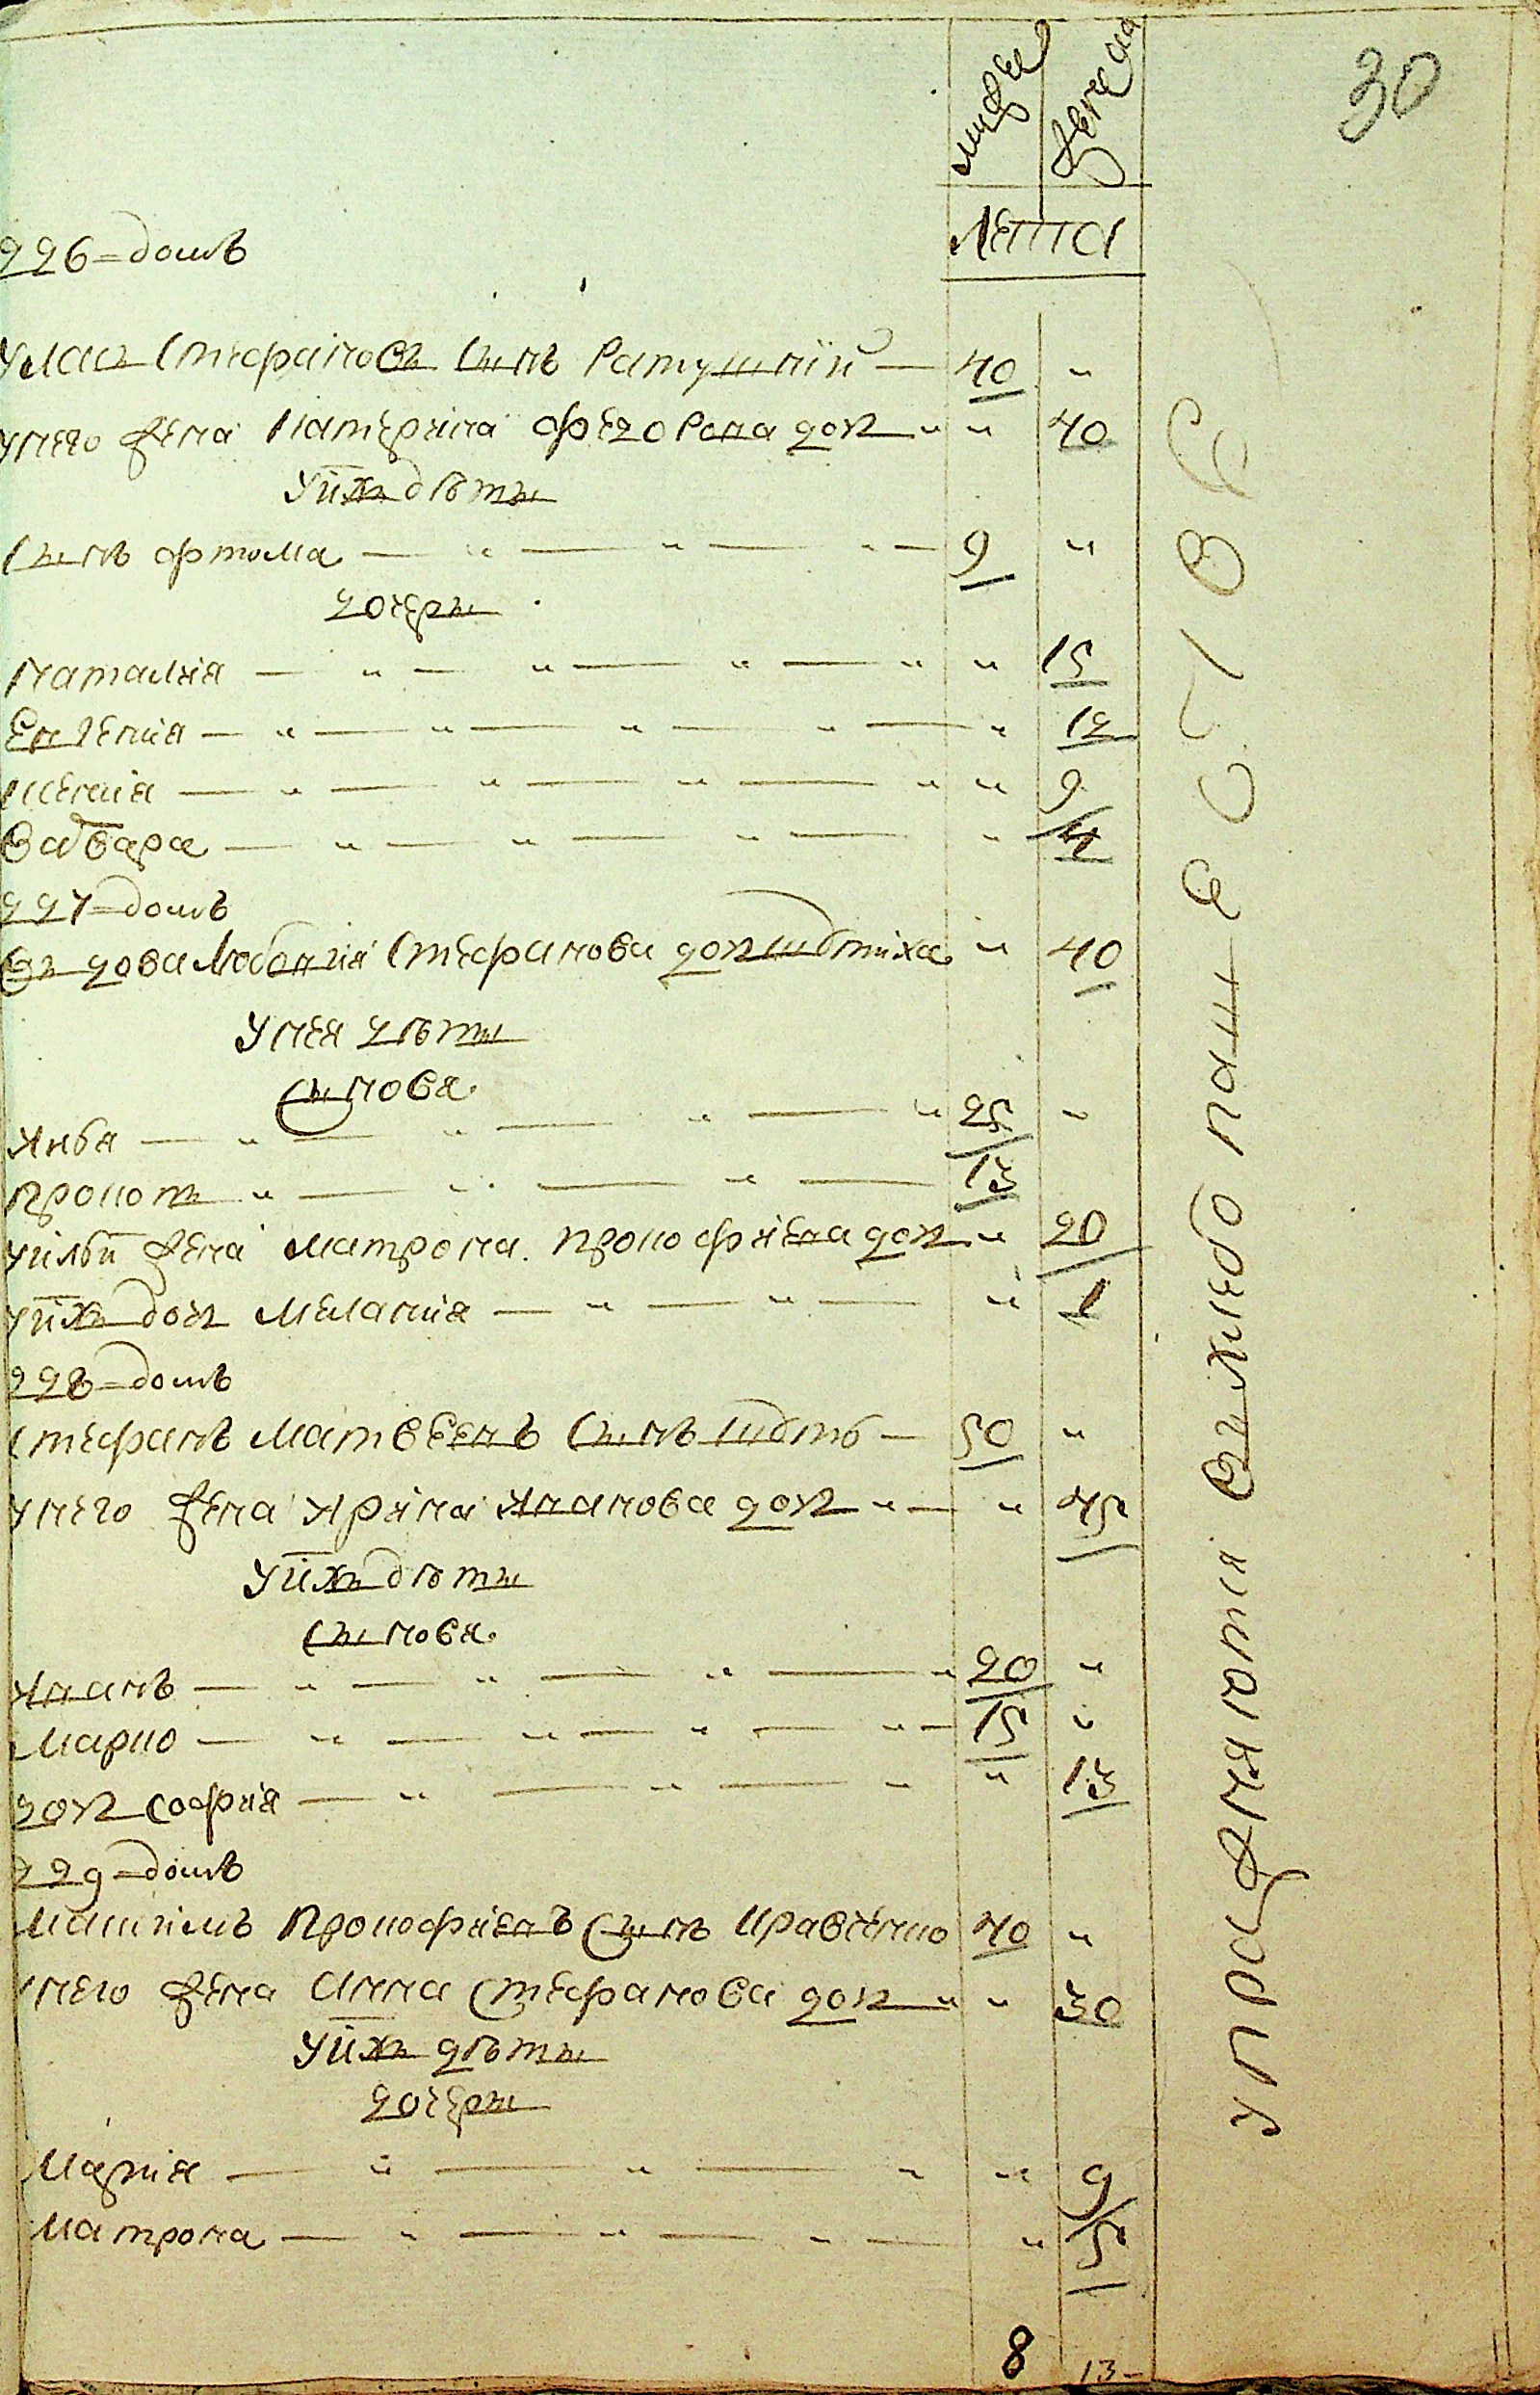 30
мужска женска
лета
226 = домъ
Улас Стефановъ сынъ Ратушнїй — 40 "
унего жена Катерина Федорова доч " " 40
Уних дѣты
Сынъ Фтома — " — " — " — 9 "
дочеры
Наталия — " — " — " — " " 15
Евгения — " — " — " — " — " 12
Ксения — " — " — " — " " 9
Варвара — " — " — " — " 4
227 = домъ
Вдова Стефанова доч " 40
Унея дѣты
Сынова
— " — " — " — " 25 "
Прокоп " — " — " — 13
жена Матрона Прокофиева доч " 20
Уних доч Мелания — " — " — " 1
228 = домъ
Стефанъ Матвеевъ Сынъ — 50 "
унего жена Ирина Иванова доч " — " 45
Уних дѣты
Сынова
Иванъ — " — " — " — " 20 "
Марко — " — " — " — " — 15 "
доч София — " — " — " " 13
229 = домъ
Максимъ Прокофиевъ Сынъ Кравченко 40 "
унего жена Анна Стефанова доч " " 30
Уних дѣты
дочеры
Мария — " — " — " " 9
Матрона — " — " — " — " 5
8 13 -
упражняются въ хлебопашестве